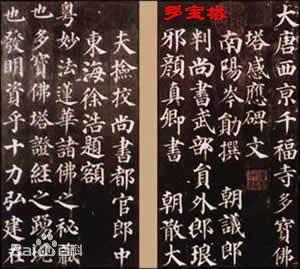 多宝塔
大唐西京千福寺多寶佛
塔感應碑文
南陽岑勛撰 朝議郎
判尚書武部員外郎琅
邪顏真卿書 朝散大
夫撿校尚書都官郎中
東海徐浩題額
粵妙法蓮華諸佛之秘藏
也多寶佛塔證經之踴現
也發明資乎十力弘建在
百科